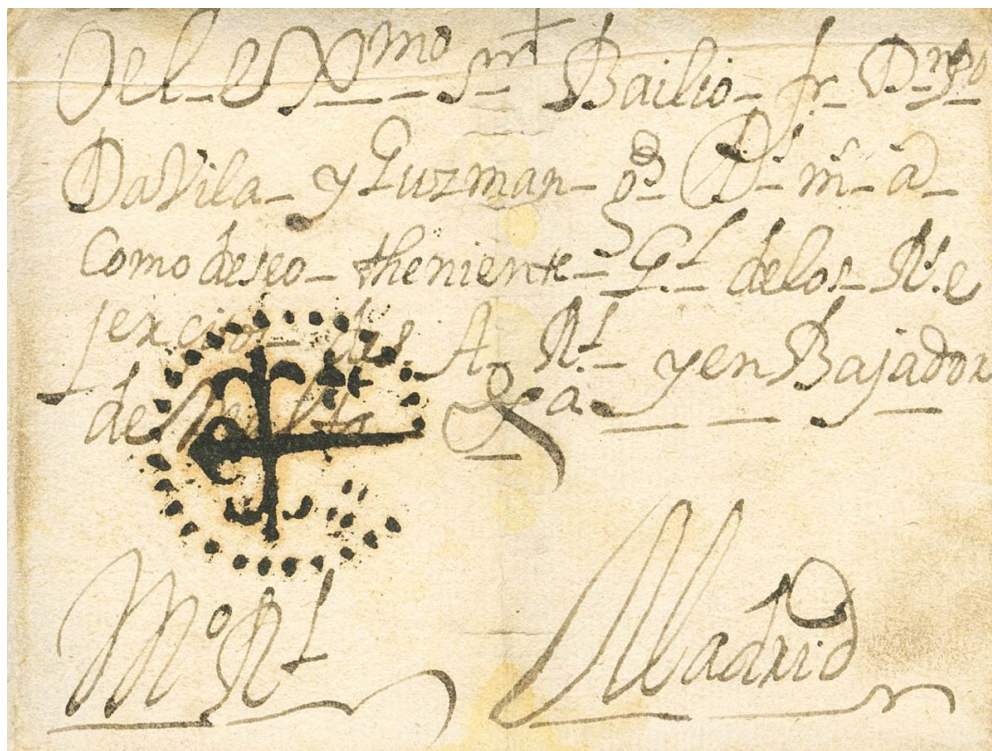 Al eXmo sr Bailio fr Dn po
DaVila y Guzman gde Ds m a
Como deseo theniente Gl delos Rs e
jexcitos de s A. Rl y en Bajador
de Malta &a
Mo Rl Madrid